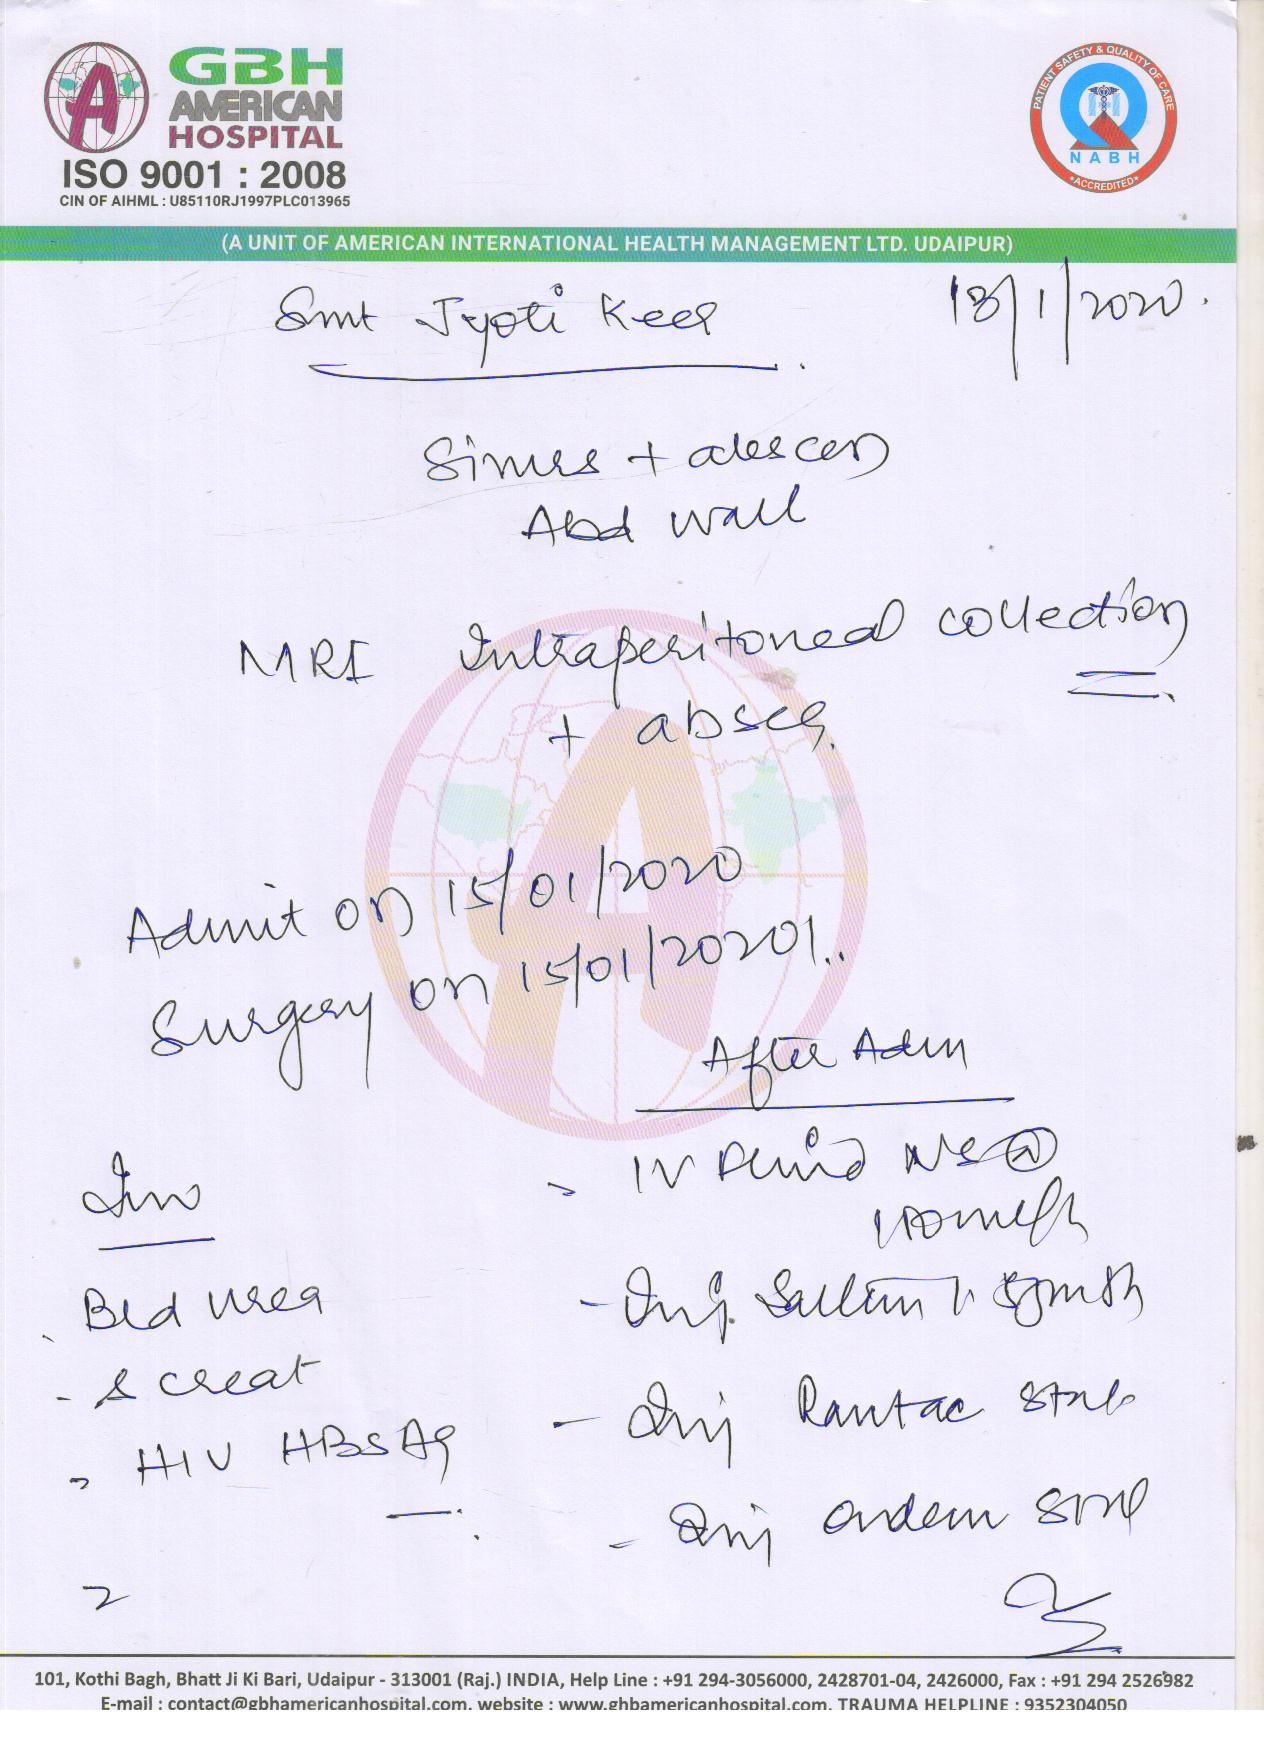 GBH
AMERICAN
HOSPITAL
ISO 9001 : 2008
CIN OF AIHML : U85110RJ1997PLC013965
PATIENT SAFETY & QUALITY OF CARE
NABH
ACCREDITED
(A UNIT OF AMERICAN INTERNATIONAL HEALTH MANAGEMENT LTD. UDAIPUR)
Smt Jyoti Keer
13/1/2020.
Sinus +
Abd wall
MRI Intraperitoneal collection
+ abscess
Admit on 15/01/2020
Surgery on 15/01/2020
After Adm
Inv
- IV Fluid NS @
Bld urea
- Inj.
- S creat
- Inj Rantac
- HIV HBsAg
- Inj
101, Kothi Bagh, Bhatt Ji Ki Bari, Udaipur - 313001 (Raj.) INDIA, Help Line : +91 294-3056000, 2428701-04, 2426000, Fax : +91 294 2526982
E-mail : contact@gbhamericanhospital.com, website : www.ghbamericanhospital.com, TRAUMA HELPLINE : 9352304050